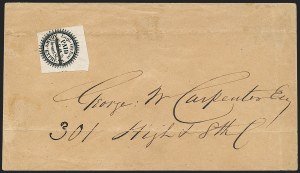 PAID
George W Carpenter Esq
301 High & 8th